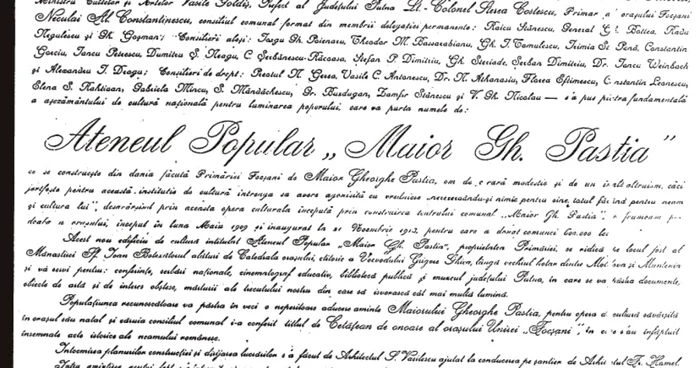 Ministru Cultelor și Artelor Vasile Goldiș, Prefect al Județului Putna Lt.-Colonel Sterea Costescu, Primar a orașului Focșani
Neculai Al. Constantinescu, consiliul comunal format din membrii delegației permanente: Raicu Stănescu, General C. Rottea, Radu
Negulescu și Gh. Goșman; Consilieri aleși: Iorgu Gh. Poenaru, Theodor M. Bassarabianu, Gh. I. Tomulescu, Irimia St. Constantin
Gociu, Iancu Petrescu, Dumitru S. Neagu, C. Șerbănescu-Răcoasa, Ștefan P. Dimitriu, Gh. Steriade, Șerban Dimitriu, Dr. Iancu Weinbach
și Alexandru I. Dragu; Consilieri de drept: Preotul N. Gerea, Vasile C. Antonescu, Dr. N. Athanasiu, Florea Eftimescu, Constantin Leonescu,
Elena S. Kahtioan, Gabriela Mincu, S. Măndăchescu, Gr. Burdugan, Zamfir Stănescu și V. Gh. Nicolau — s'a pus piatra fundamentală
a așezământului de cultură națională pentru luminarea poporului, care va purta numele de:
Ateneul Popular „Maior Gh. Pastia”
ce se construește din dania făcută Primăriei Focșani de Maior Gheorghe Pastia, om de o rară modestie și de un înalt altruism, căci
jertfește pentru această instituție de cultură întreaga sa avere agonisită cu vrednicie nerezervându-și nimic pentru sine, totul fiind pentru neam
și cultura lui", desăvârșind prin aceasta opera culturală începută prin construirea teatrului comunal „Maior Gh. Pastia",
a orașului, început în luna Maiu 1909 și inaugurat la Noembrie 1913, pentru care a dăruit comunei 600.000 lei
Acest nou edificiu de cultură intitulat Ateneul Popular „Maior Gh. Pastia", proprietatea Primăriei, se ridică pe locul fost al
Mănăstirii Sf. Ioan Botezătorul alături de Catedrala orașului, ctitorie a Voevodului Grigore Ghica, lângă vechiul hotar dintre Moldova și Muntenia
și va servi pentru: conferințe, serbări naționale, cinematograf educativ, bibliotecă publică și muzeul județului Putna, în care se va păstra documente,
obiecte de artă și de interes obștesc, mărturii ale trecutului nostru din care să isvorască cât mai multă lumină.
Populațiunea recunoscătoare va păstra în veci o nepieritoare aducere aminte Maiorului Gheorghe Pastia, pentru opera culturală săvârșită
în orașul său natal și căruia consiliul comunal i-a conferit titlul de Cetățean de onoare al orașului Unirei „Focșani", în care s'au înfăptuit
însemnate acte istorice ale neamului românesc.
Întocmirea planurilor construcției și dirijarea lucrărilor s'a făcut de Arhitectul P. Vasilescu ajutat la conducerea pe șantier de Arhitectul Fr. Hamel.